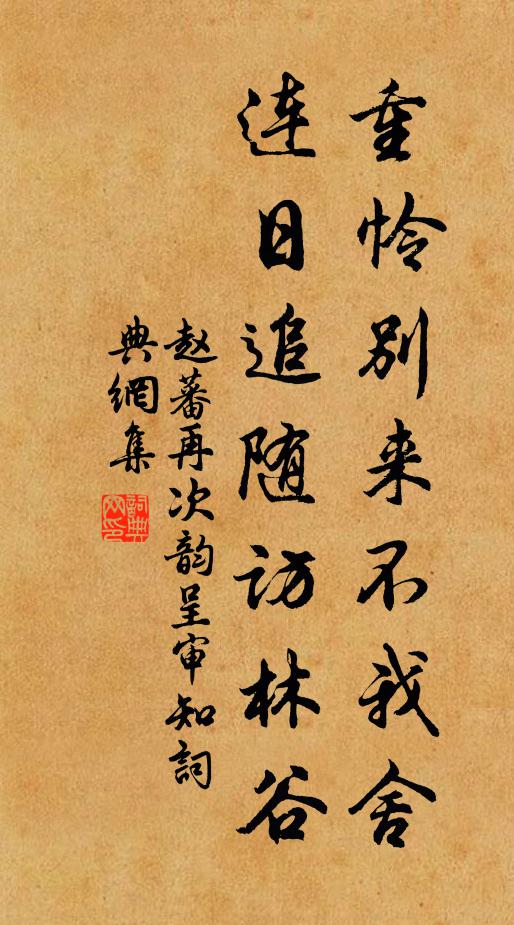 重怜别来不我舍
连日追随访林谷
赵蕃再次韵呈审知詞
典網集
詞典網印